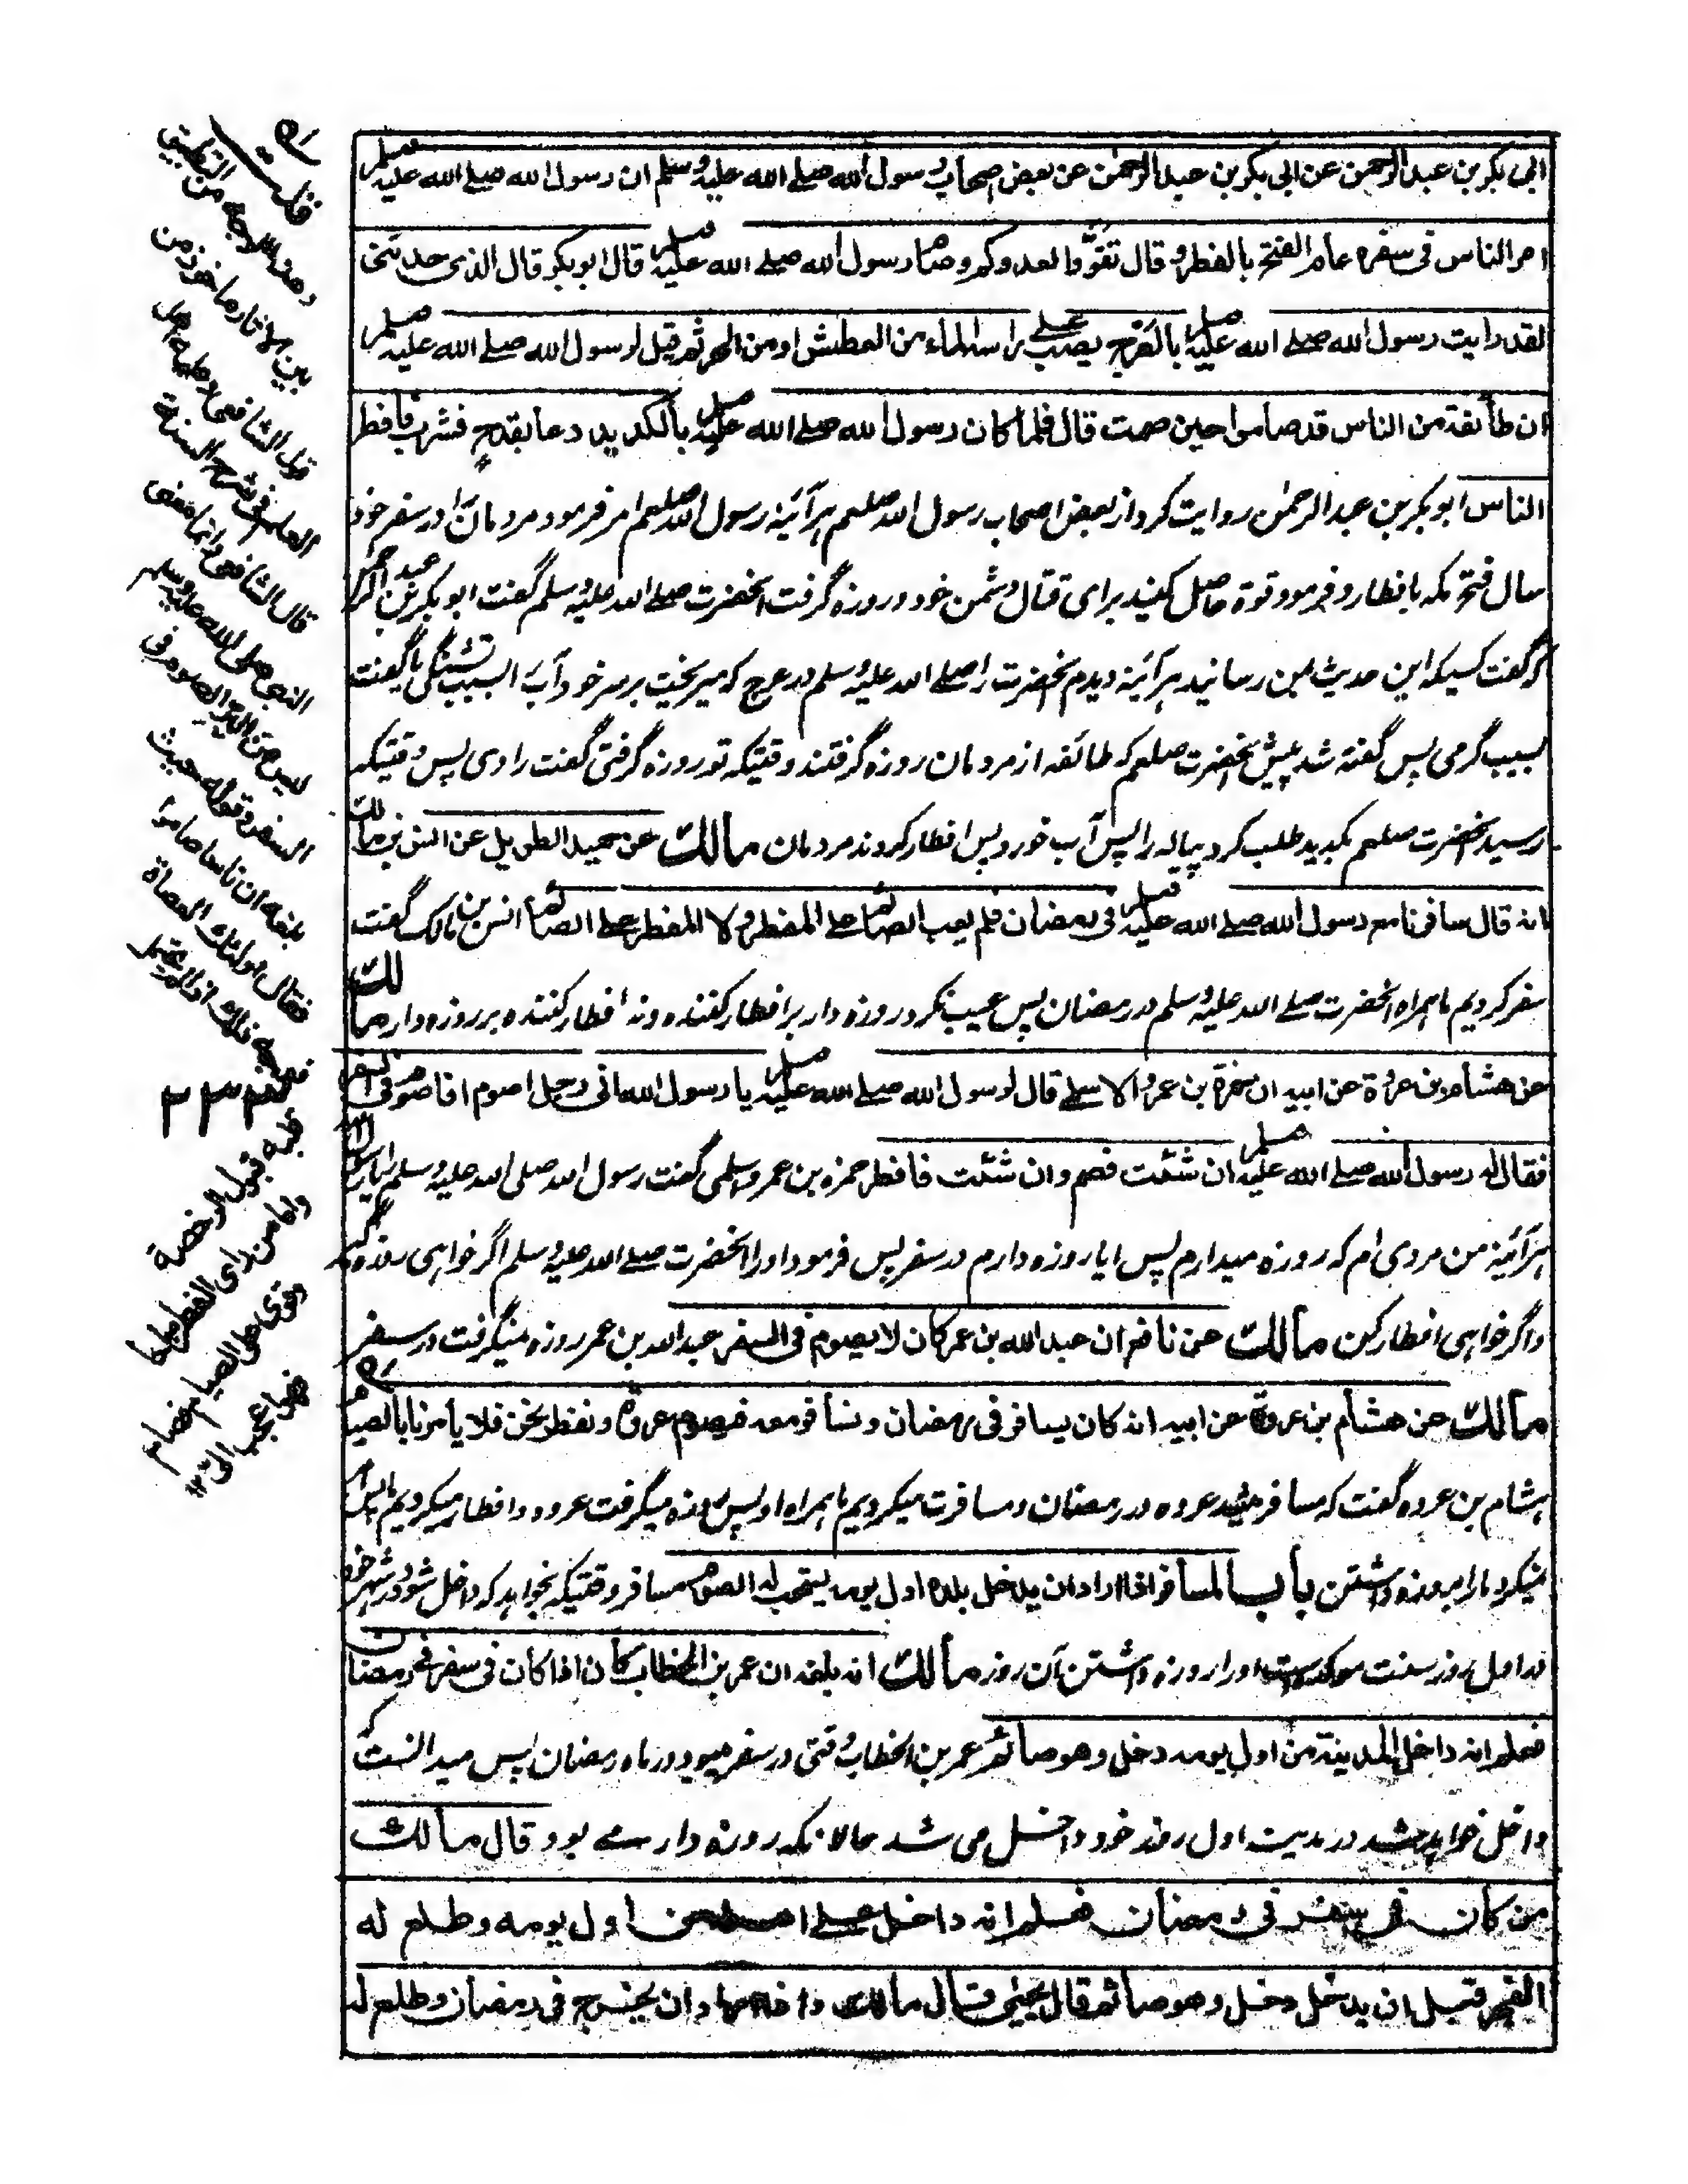 ابی بکر بن عبد الرحمن عن ابی بکر بن عبد الرحمن عن بعض اصحاب رسول الله صلے الله علیه وسلم ان رسول الله صلے الله علیه وسلم
امر الناس فی سفره عام الفتح بالفطر وقال تقووا لعدوکم وصام رسول الله صلے الله علیه وسلم قال ابوبکر قال الذی حدثنی
لقد رایت رسول الله صلے الله علیه وسلم بالعرج یصب علے راسه الماء من العطش او من الحر ثم قیل لرسول الله صلے الله علیه وسلم
ان طائفة من الناس قد صاموا حین صمت قال فلما کان رسول الله صلے الله علیه وسلم بالکدید دعا بقدح فشرب فافطر
الناس ابو بکر بن عبد الرحمن روایت کرد از بعض اصحاب رسول الله صلعم هرآئینه رسول الله صلعم امر فرمود مردمان را در سفر خود
سال فتح مکه بافطار و فرمود قوة حاصل کنید برای قتال دشمن خود و روزه گرفت آنحضرت صلے الله علیه وسلم گفت ابو بکر بن عبد الرحمن
که گفت کسیکه این حدیث بمن رسانید هرآئینه دیدم آنحضرت را صلے الله علیه وسلم در عرج که میریخت بر سر خود آب بسبب تشنگی یا گفت
بسبب گرمی پس گفته شد پیش آنحضرت صلعم که طائفه از مردمان روزه گرفتند وقتیکه تو روزه گرفتی گفت راوی پس وقتیکه
رسید آنحضرت صلعم بکدید طلب کرد پیاله را پس آب خورد پس افطار کردند مردمان مالك عن حمید الطویل عن انس بن مالك
انه قال سافرنا مع رسول الله صلے الله علیه وسلم فی رمضان فلم یعب الصائم علے المفطر ولا المفطر علے الصائم انس بن مالک گفت
سفر کردیم ما همراه آنحضرت صلے الله علیه وسلم در رمضان پس عیب نکرد روزه دار بر افطار کننده و نه افطار کننده بر روزه دار مالك
عن هشام بن عروة عن ابیه ان حمزة بن عمرو الاسلمی قال لرسول الله صلے الله علیه وسلم یا رسول الله انی رجل اصوم افاصوم فی السفر
فقال له رسول الله صلے الله علیه وسلم ان شئت فصم وان شئت فافطر حمزه بن عمرو اسلمی گفت رسول الله صلی الله علیه وسلم را یا رسول الله
هرآئینه من مردی ام که روزه میدارم پس ایا روزه دارم در سفر پس فرمود او را آنحضرت صلے الله علیه وسلم اگر خواهی روزه گیر
واگر خواهی افطار کن مالك عن نافع ان عبد الله بن عمر کان لا یصوم فی السفر عبد الله بن عمر روزه نمیگرفت در سفر
مالك عن هشام بن عروة عن ابیه انه کان یسافر فی رمضان ونسافر معه فیصوم عروة ونفطر نحن فلا یأمرنا بالصیام
هشام بن عروه گفت که مسافر میشد عروه در رمضان و مسافرت میکردیم ما همراه او پس روزه میگرفت عروه و افطار میکردیم ما پس امر
نمیکرد ما را بروزه داشتن باب المسافر اذا اراد ان یدخل بلده اول یومه یستحب له الصوم مسافر وقتیکه بخواهد که داخل شود در شهر خود
در اول روز سنت موکده است او را روزه داشتن آن روز مالك انه بلغه ان عمر بن الخطاب کان اذا کان فی سفر فی رمضان
فعلم انه داخل المدینة من اول یومه دخل وهو صائم عمر بن الخطاب وقتی در سفر میبود در ماه رمضان پس میدانست
داخل خواهد شد در مدینه اول روز خود داخل می شد حالانکه روزه دار مے بود قال مالك
من کان فی سفر فی رمضان فعلم انه داخل علے اهله من اول یومه وطلع له
الفجر قبل ان یدخل دخل وهو صائم قال یحیی قال مالك واذا اراد ان یخرج فی رمضان وطلع له
قلت
وهذا الاوجه من التطبیق
بین الاثار ماخوذ من
قول الشافعی وعلیه اهل
العلم فی شرح السنة
قال الشافعی وانما معنی
النبی صلی الله علیه وسلم
لیس من البر الصوم فی
السفر وقوله حین
بلغه ان ناسا صاموا
فقال اولئك العصاة
فوجه ذلك اذا لم یحتمل
قلبه قبول الرخصة
واما من رای الفطر مباحا
وقوی علی الصیام فصام
فهو اعجب الی ۱۲